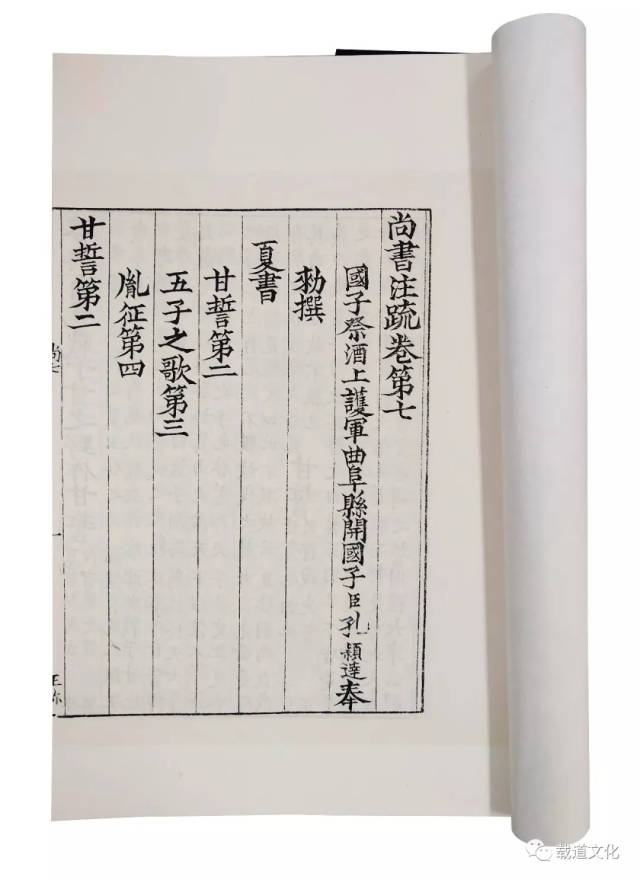 尚書注疏卷第七
國子祭酒上護軍曲阜縣開國子臣孔穎達奉
勑撰
夏書
甘誓第二
五子之歌第三
胤征第四
甘誓第二
尚七
一
载道文化